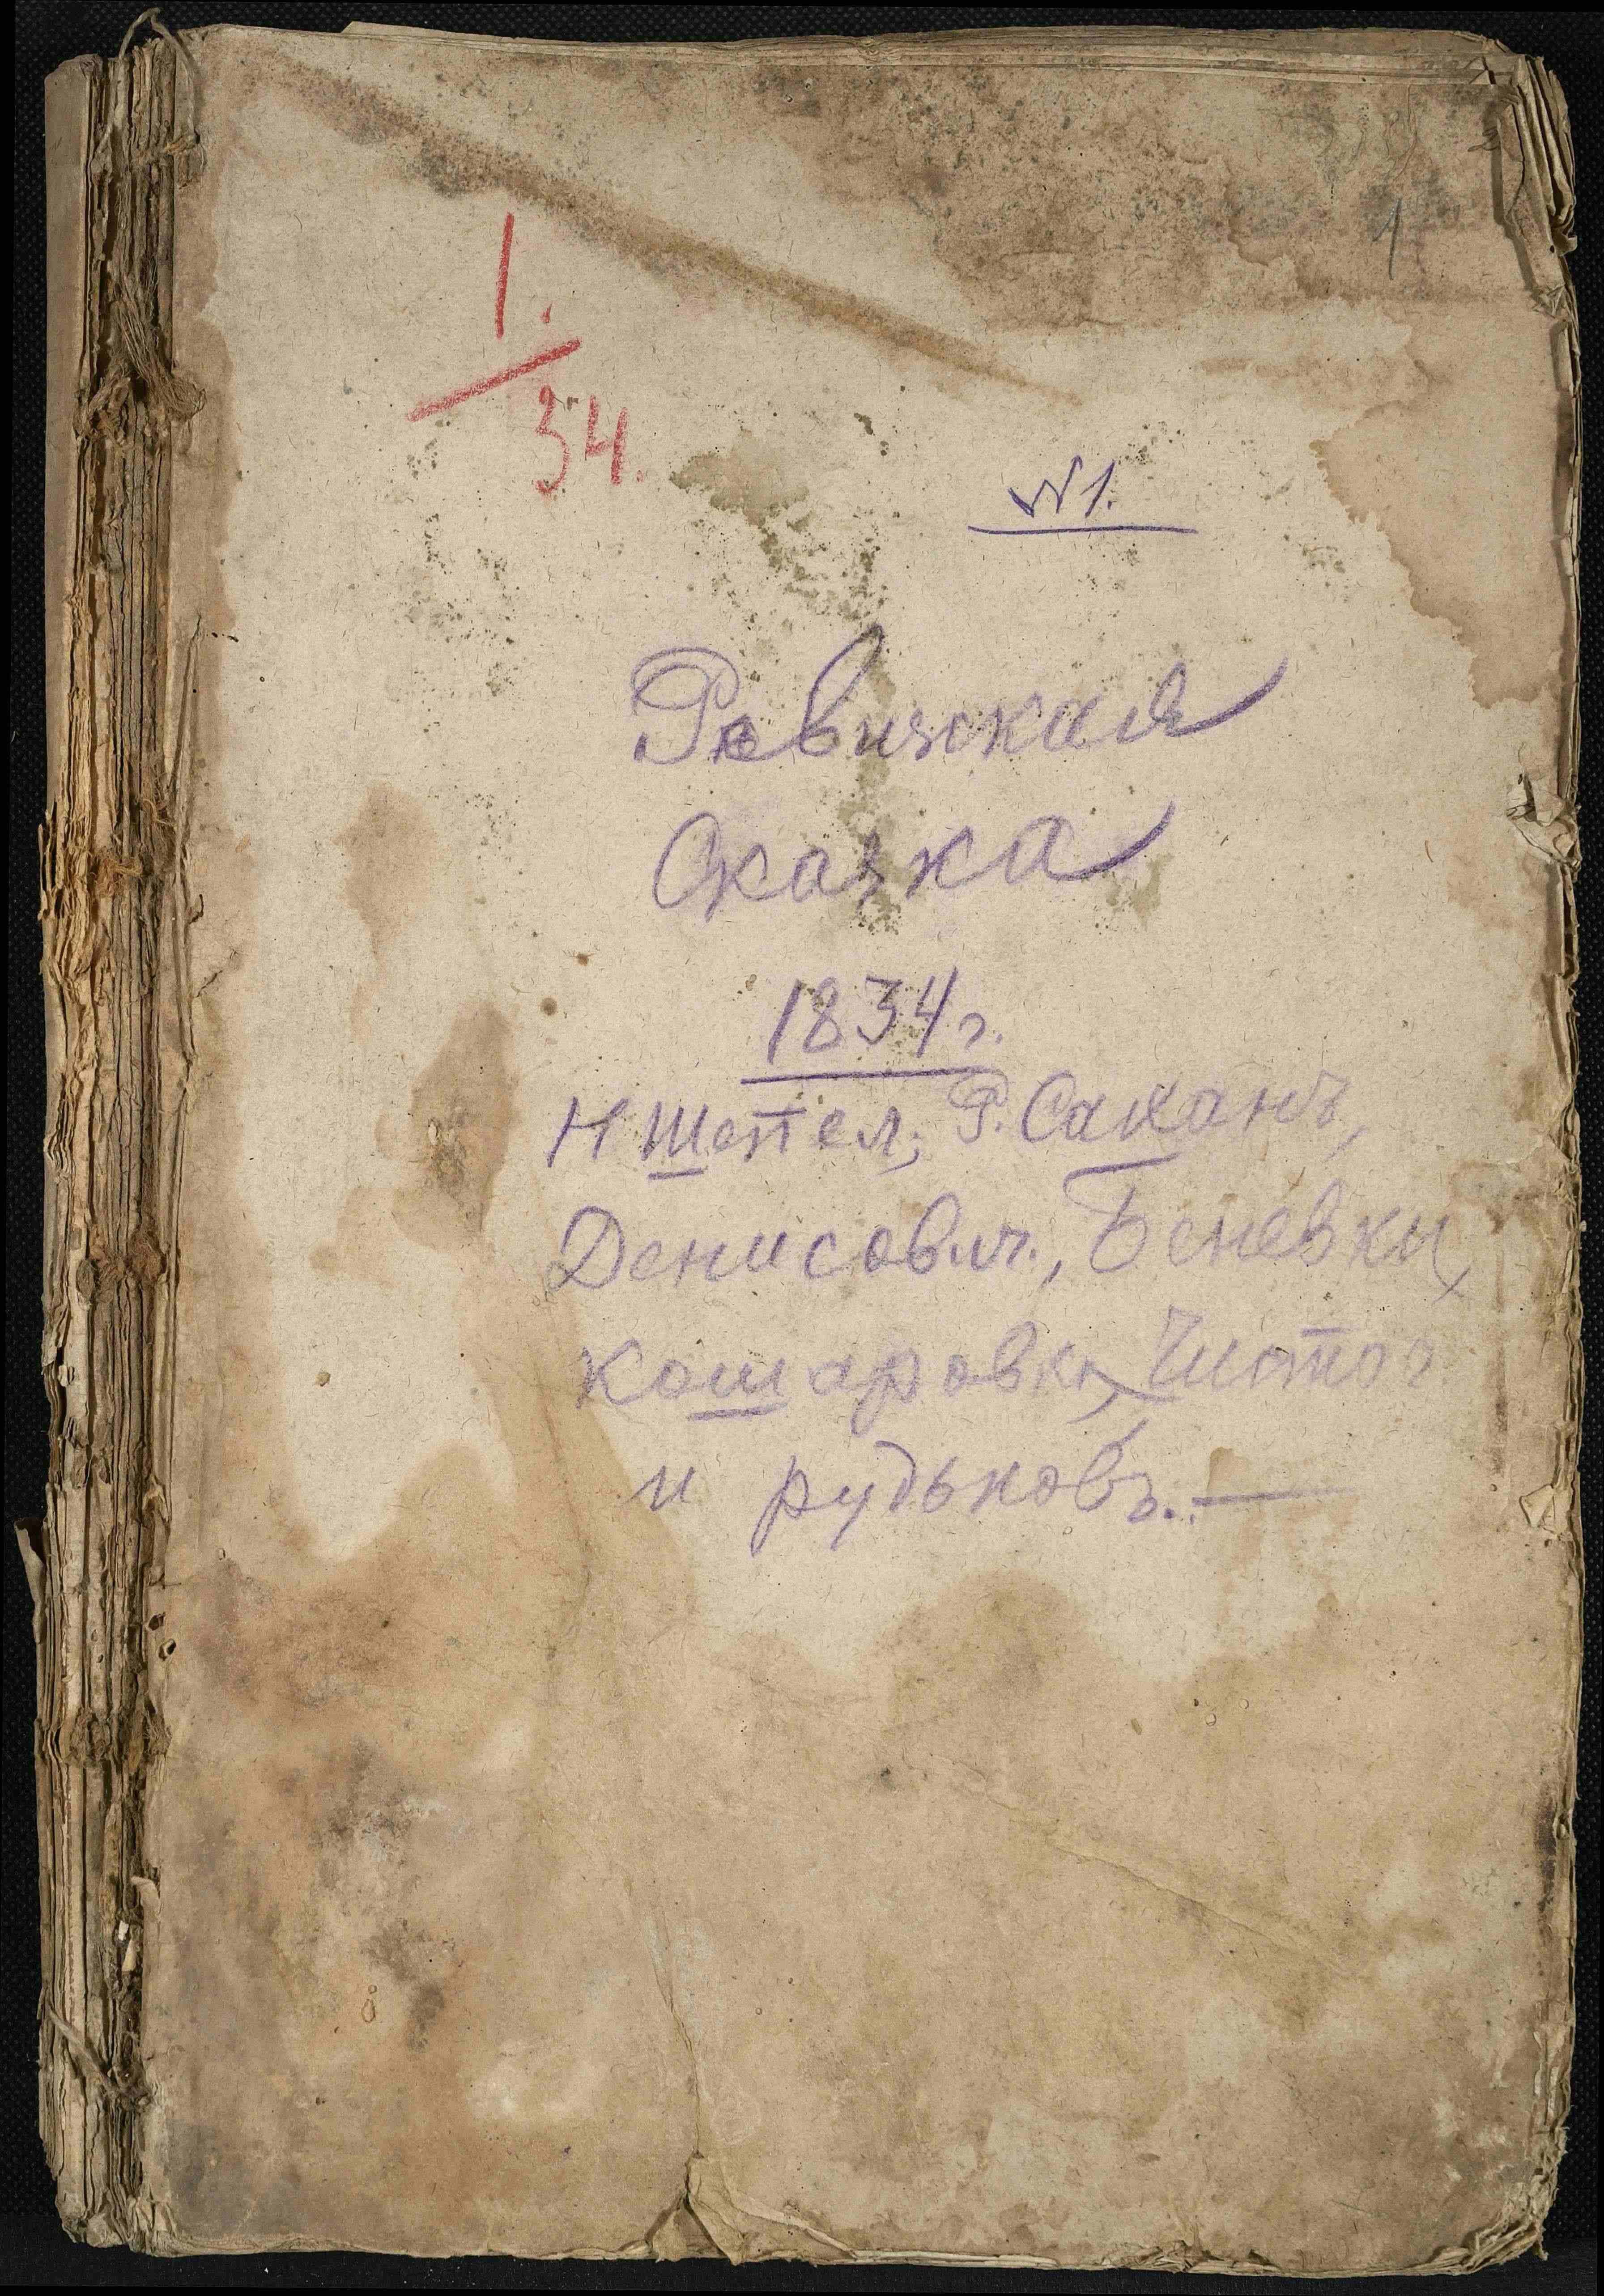 1
1.
34.
№ 1.
Ревизская
Сказка
1834 г.
Н Шепел, Р. Сакань,
Денисович., Беневки,
кошаровки, Чистог
и рудьковъ. —